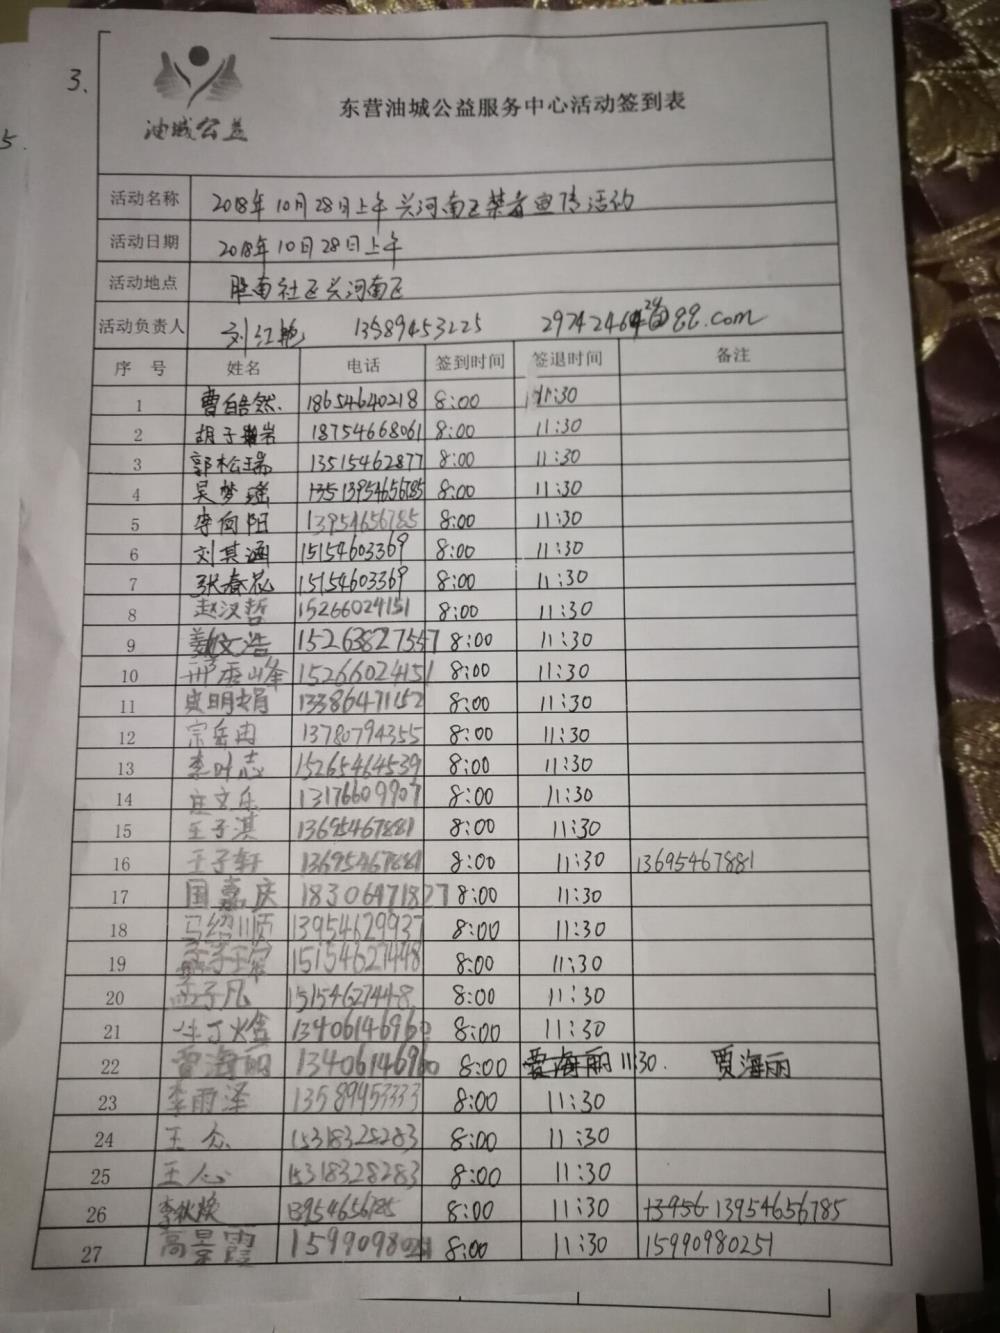 3、
5.
油城公益
东营油城公益服务中心活动签到表
活动名称 2018年10月28日上午兴河南区禁毒宣传活动
活动日期 2018年10月28日上午
活动地点 胜南社区兴河南区
活动负责人 刘红艳 13589453225 qq.com
序 号 姓名 电话 签到时间 签退时间 备注
1 曹皓然. 18654640218 8:00 11:30
2 胡子岩 18754668061 8:00 11:30
3 郭松瑞 13515462877 8:00 11:30
4 吴梦瑶 13513954656785 8:00 11:30
5 李向阳 13954656785 8:00 11:30
6 刘其涵 15154603369 8:00 11:30
7 张春花 15154603369 8:00 11:30
8 赵汉哲 15266024151 8:00 11:30
9 文浩 15263827557 8:00 11:30
10 邢秀峰 15266024151 8:00 11:30
11 史明娟 13386471152 8:00 11:30
12 宗岳冉 13780794355 8:00 11:30
13 李叶志 15265464539 8:00 11:30
14 庄文乐 13176609907 8:00 11:30
15 王子淇 13695467881 8:00 11:30
16 王子轩 13695467881 8:00 11:30 13695467881
17 国嘉庆 18306471827 8:00 11:30
18 马绍顺 13954629937 8:00 11:30
19 15154627448 8:00 11:30
20 子凡 15154627448. 8:00 11:30
21 13406146960 8:00 11:30
22 贾海丽 13406146960 8:00 贾海丽 11:30. 贾海丽
23 李雨泽 13589953333 8:00 11:30
24 王众 15318328283 8:00 11:30
25 王心 15318328283 8:00 11:30
26 李秋焕 13954656785 8:00 11:30 13956 13954656785
27 高景霞 15990980251 8:00 11:30 15990980251